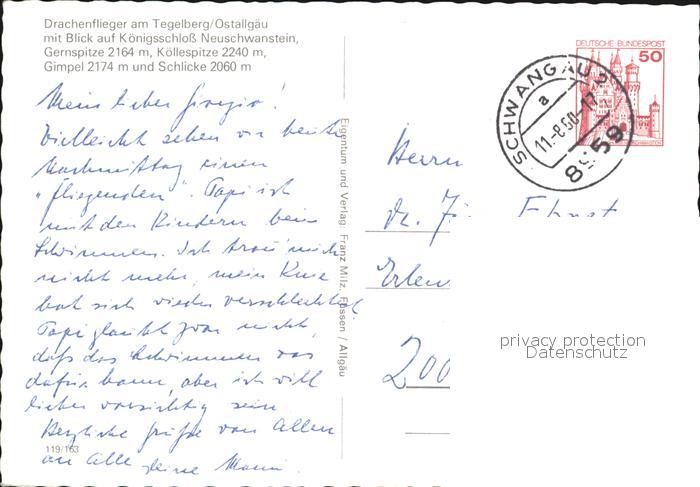 Drachenflieger am Tegelberg/Ostallgäu
mit Blick auf Königsschloß Neuschwanstein,
Gernspitze 2164 m, Köllespitze 2240 m,
Gimpel 2174 m und Schlicke 2060 m
Mein lieber Giorgio!
Vielleicht sehen wir heute
Nachmittag einen
"fliegenden". Papi ist
mit den Kindern beim
Schwimmen. Ich trau' mich
nicht mehr, mein Knie
hat sich wieder verschlechtert.
Papi glaubt zwar nicht,
daß das Schwimmen was
dafür kann, aber ich will
lieber vorsichtig sein
Herzliche Grüße von Allen
an Alle Deine Mami.
119/163
Eigentum und Verlag: Franz Milz, Füssen / Allgäu
DEUTSCHE BUNDESPOST
50
SCHWANGAU
a
11.-8.80-17
8959
Herrn
Dr. Ernst
Erlen
200
privacy protection
Datenschutz